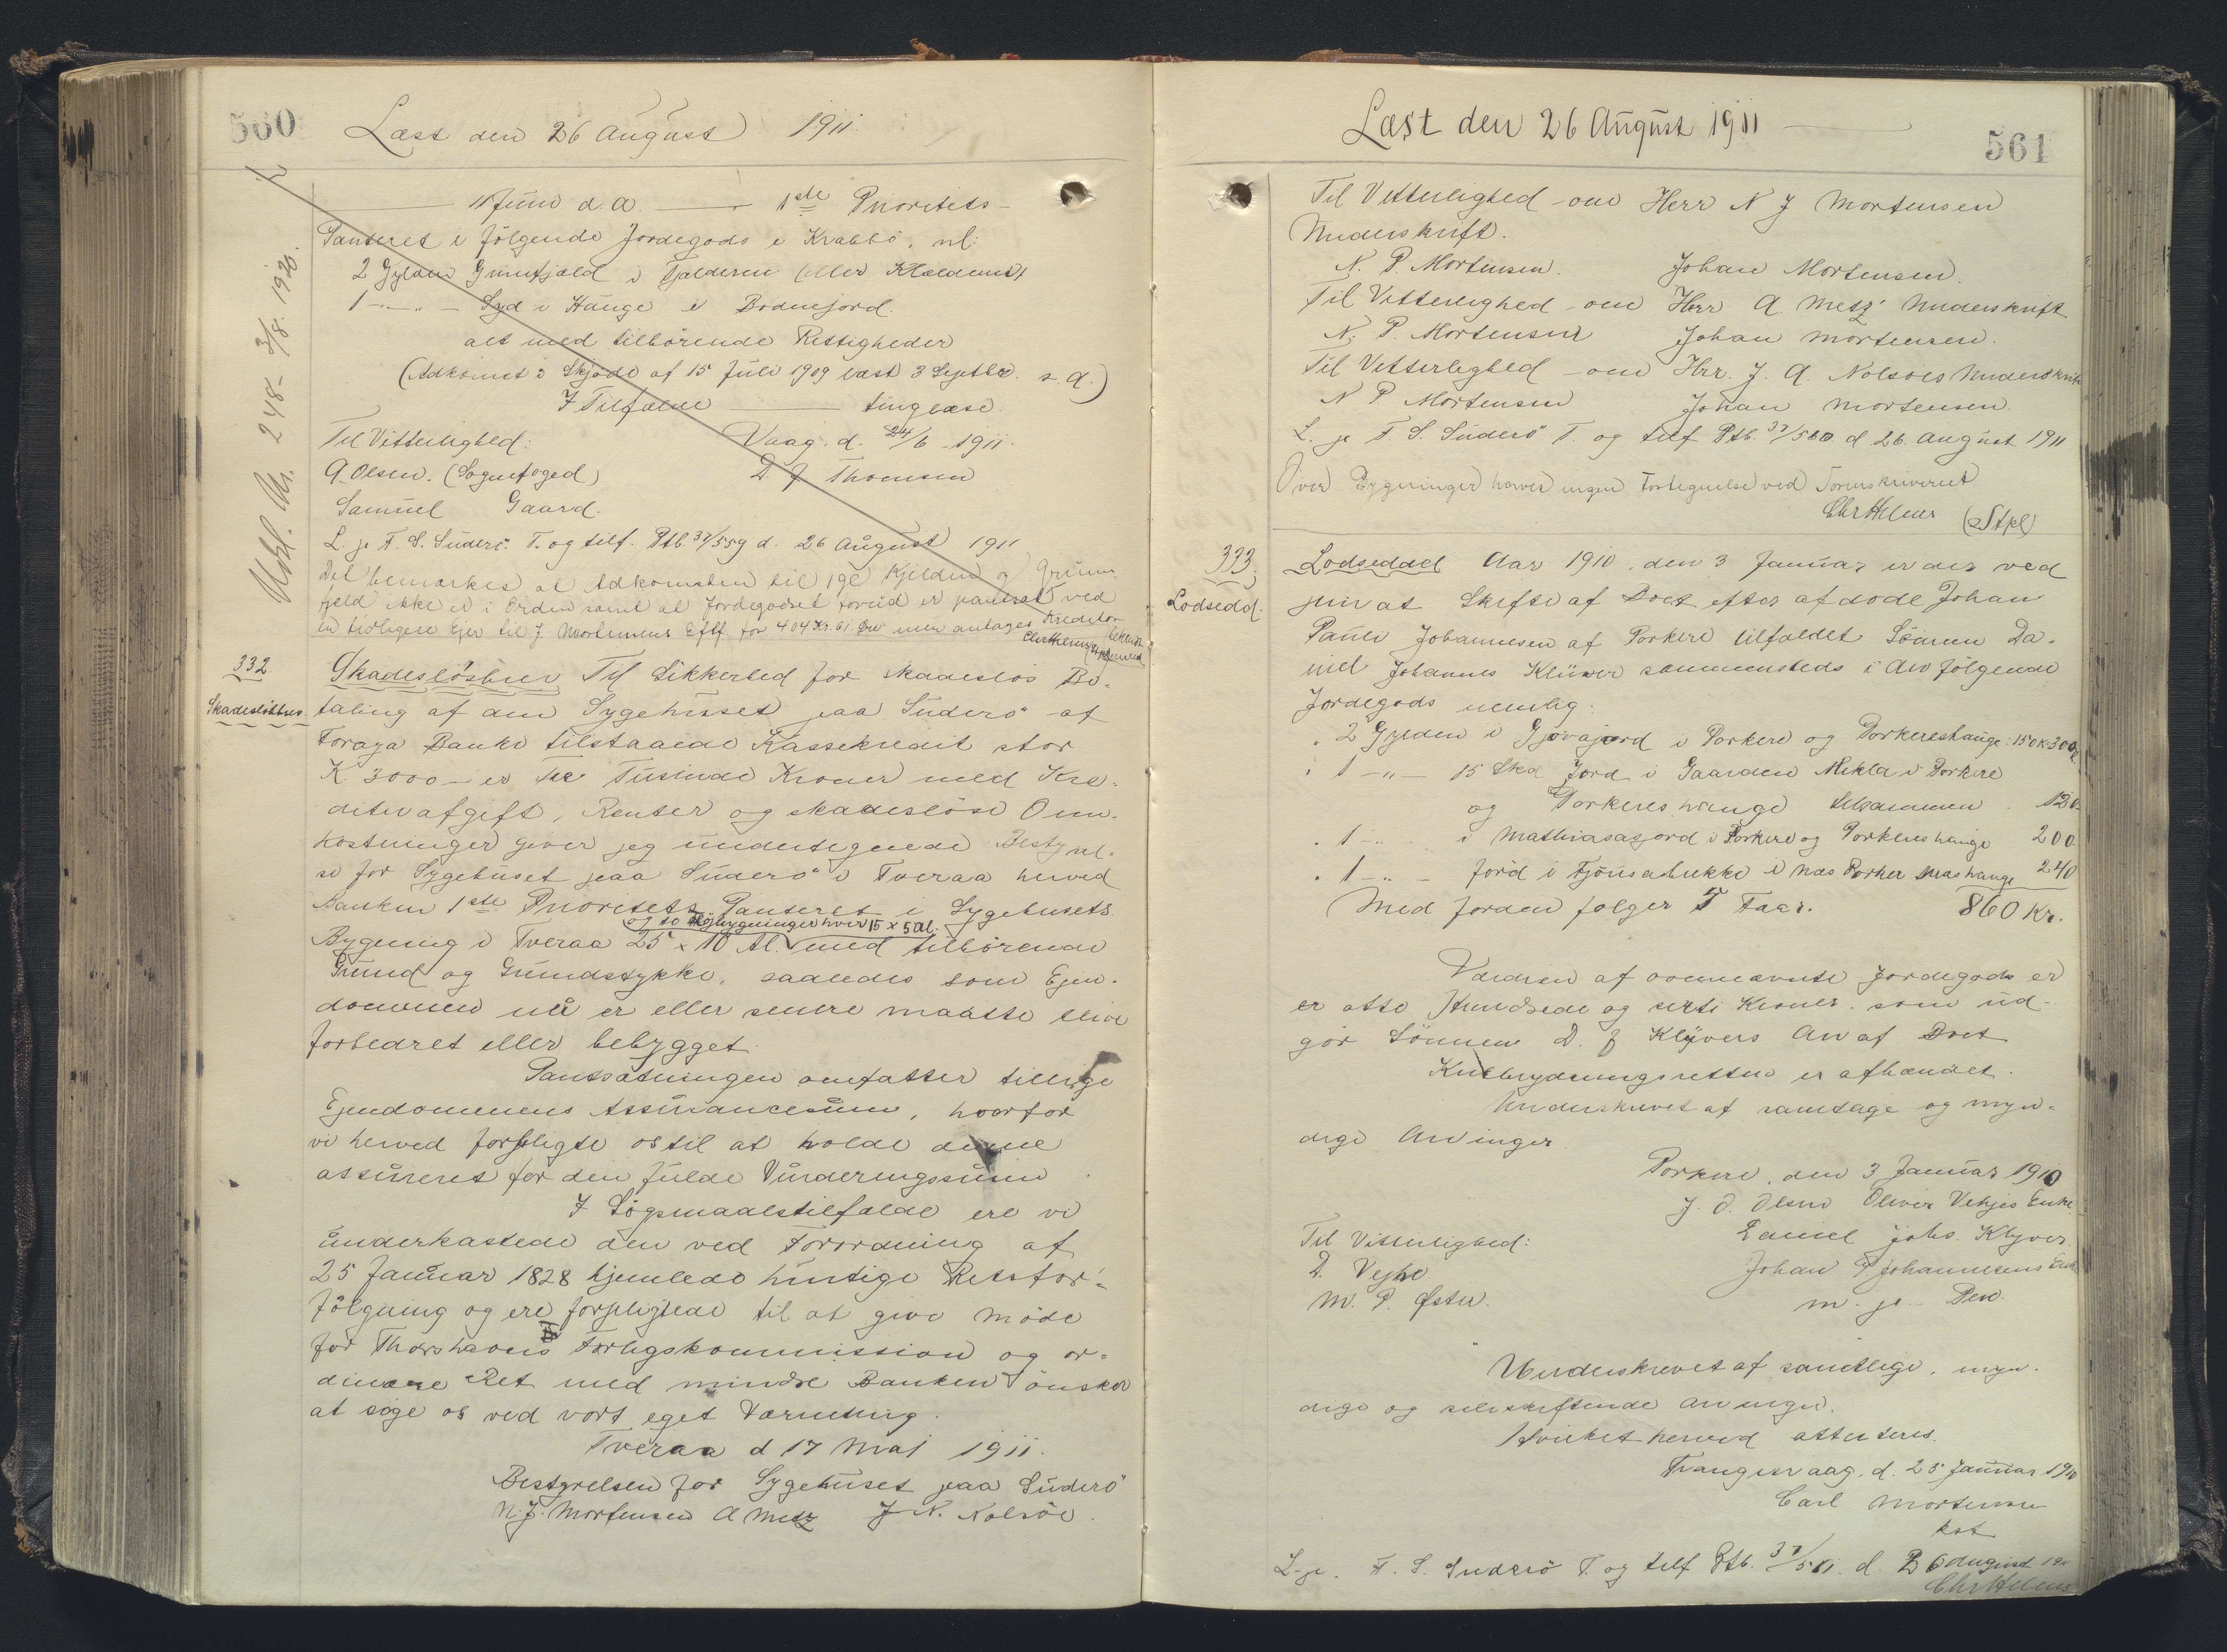 560
Læst den 26 August 1911.
Udsl. Nr. 248 - 3/8. 1920.
11 Juni d A. — 1ste Prioritets-
Panteret i følgende Jordegods i Krabbö. nl:
2 Gylden Grimfjæld i Tjalderen (eller Kloldens)
1 —„— Syd i Hauge i Bodnejord.
alt med tilhörende Rettigheder
(Adkomst: Skjøde af 15 Juli 1909 læst 3 Septbr. s. A.)
I Tilfælde — tinglæse.
Til Vitterlighed: Vaag. d. 24/6 - 1911.
A. Olsen. (Sognefoged) D J Thomsen
Samuel Gaard.
L. p F. S. Suderö. T. og telf. Ptb. 37/559 d. 26 August 1911
Det bemærkes at Adkomsten til 1 Gl Kjelden og Grim-
fjeld ikke er i Orden samt at Jordegodset forud er pantsat ved
en tidligere Ejer til J. Mortensens Eftf. for 404 Kr. 61 Øre men antages Kreditor
bekendt
hermed
332.
Skadesløsbrev.
Skadesløsbrev Til Sikkerhed for skadesløs Be-
taling af den Sygehuset paa Suderö af
Foroya Banke tilstaaede Kassekredit stor
K. 3000 — er Tre Tusinde Kroner med Kre-
ditivafgift, Renter og skadesløse Om-
kostninger giver jeg undertegnede Bestyrel-
se for Sygehuset paa Suderö i Tveraa herved
Banken 1ste Prioritets Panteret i Sygehusets
og to Fløjbygninger hver 15 x 5 Al.
Bygning i Tveraa 25 x 10 Al med tilhörende
Grund og Grundstykke, saaledes som Ejen-
dommen nu er eller senere maatte blive
forbedret eller bebygget.
Pantsætningen omfatter tillige
Ejendommens Assurancesum, hvorfor
vi herved forpligte os til at holde denne
assureret for den fulde Vurderingssum
I Søgsmaalstilfælde ere vi
underkastede den ved Forordning af
25 Januar 1828 hjemlede hurtige Retsfor-
følgning og ere forpligtede til at give møde
for Thorshavns Forligskommission og or-
dinære Ret med mindre Banken önsker
at søge os ved vort eget Værneting.
Tveraa d 17 Maj 1911.
Bestyrelsen for Sygehuset paa Suderö
N. J. Mortensen A Metz J. N. Nolsöe.
Læst den 26 August 1911
561
Til Vitterlighed om Herr N J Mortensen
Underskrift.
N. P. Mortensen. Johan Mortensen.
Til Vitterlighed om Herr A Metz' Underskrift
N. P. Mortensen Johan Mortensen.
Til Vitterlighed om Hrr. J. A. Nolsöes Underskrift
N P Mortensen Johan Mortensen.
L. p F S. Suderö T. og telf Ptb. 37/560 d 26. August 1911
Over Bygninger haves ingen Fortegnelse ved Sorenskriveriet
(Stpl)
333.
Lodsedd.
Lodseddel Aar 1910, den 3 Januar er der ved
privat Skifte af Boet efter afdøde Johan
Pauli Johannesen af Porkere tilfaldet Sönnen Da-
niel Johannes Klüver sammesteds i Arv følgende
Jordegods nemlig:
. 2 Gylden i Gjovajord i Porkere og Porkereshauge: 150 K 300
. 1 —„— 15 Skd Jord i Gaarden Mikla i Porkere
og Porkeres hauge tilsammen . 120
. 1 —„— i Mathiasajord i Porkere og Porkeres hauge 200
. 1 —„— Jord i i Næs Porker Næshauge 240
Med Jorden følger 5 Faar. 860 Kr.
Værdien af ovennævnte Jordegods er
er otte Hundrede og seksti Kroner. som ud-
gör Sönnen D. J Klyvers Arv af Boet
Kulbrydningsretten er afhændet.
Underskrevet af samtlige og myn-
dige Arvinger
Porkere, den 3 Januar 1910
J. D. Olsen Oliver Vehjes Enke
Til Vitterlighed: Daniel Johs. Klyver.
D. Vejhe Johan P Johannesens Enke
M. P. Øster. m. p. Pen.
Underskrevet af samtlige, myn-
dige og selvskiftende Arvinger.
Hvilket herved atteteres.
Trangisvaag, d. 25 Januar 1910
Carl Mortensen
kst
L. p. F. S. Suderö T. og telf Ptb. 37/561. d. 26 August 1911